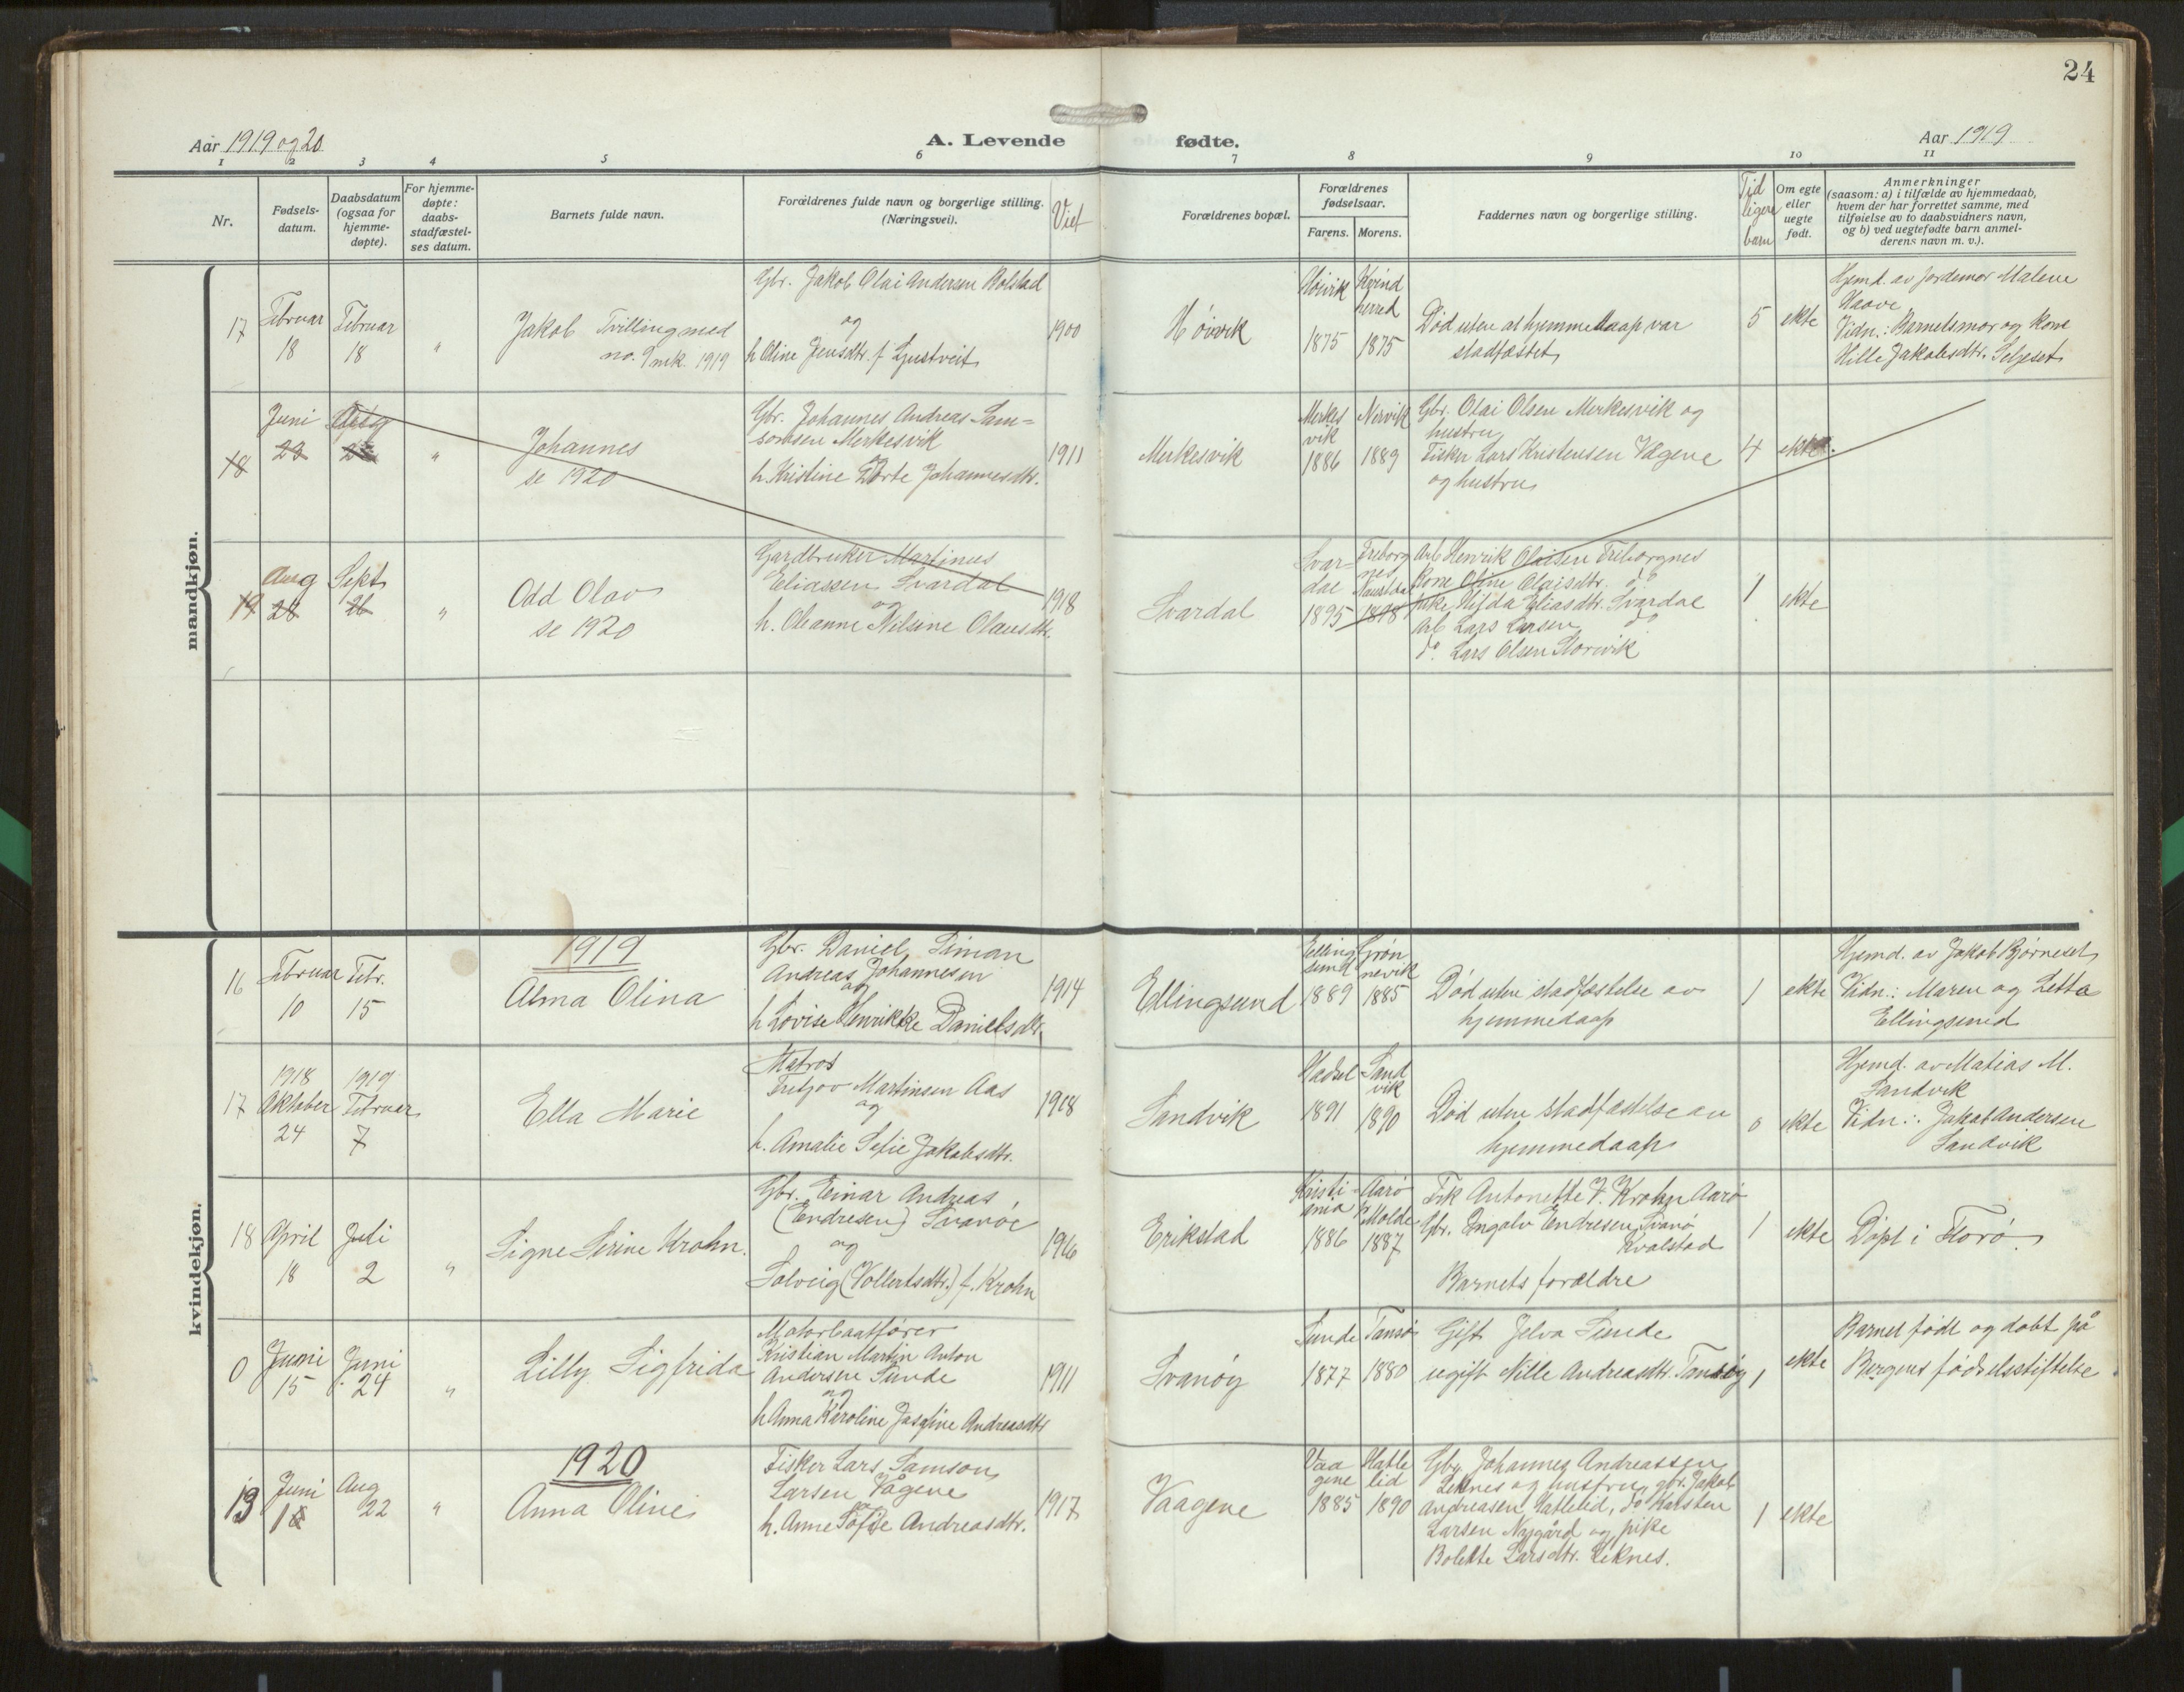 24
Aar 1919 og 20
A. Levende fødte.
Aar 1919
1 2 3 4 5 6 7 8 9 10 11
Nr.
Fødsels-
datum.
Daabsdatum
(ogsaa for
hjemme-
døpte).
For hjemme-
døpte:
daabs-
stadfæstel-
ses datum.
Barnets fulde navn.
Forældrenes fulde navn og borgerlige stilling.
(Næringsvei).
Viet
Forældrenes bopæl.
Forældrenes
fødselsaar.
Farens. Morens.
Faddernes navn og borgerlige stilling.
Tid
ligere
barn
Om egte
eller
uegte
født.
Anmerkninger
(saasom: a) i tilfælde av hjemmedaab,
hvem der har forrettet samme, med
tilføielse av to daabsvidners navn,
og b) ved uegtefødte barn anmel-
derens navn m. v.).
mandkjøn.
17
Februar
18
Februar
18
"
Jakob Tvilling med
no. 9 mk. 1919
Gbr. Jakob Olai Andersen Bolstad
og
h. Oline Jensdtr. f. Gustveit
1900
Høivik
Høivik
1875
Kvind
herred
1875
Død uten at hjemmedaap var
stadfæstet
5
ekte
Hjemd. av jordemor Malene
Haave
Vidn.: Barnets mor og kone
Hille Jakobsdtr. Seljeset
18
Juni
23
Aug
22
"
Johannes
se 1920
Gbr. Johannes Andreas Sam-
sonsen Merkesvik
og
h. Kristine Dorte Johannesdtr.
1911
Merkesvik
Merkes
vik
1886
Nervik
1889
Gbr. Olai Olsen Merkesvik og
hustru
Fisker Lars Kristensen Vågene
og hustru
4
ekte.
19
Aug
28
Sept
26
"
Odd Olav
se 1920
Gardbruker Martinus
Eliassen Svardal
og
h. Oleanne Nilsine Olausdtr.
1918
Svardal
Svar-
dal
1895
Treborg
nes
Naustdal
1898
Arb. Henrik Olaisen Treborgnes
Kone Oline Olaisdtr. do
pike Hilda Eliasdtr. Svardal
Arb. Lars Larsen do
do. Lars Olsen Storvik
1
ekte
kvindekjøn.
1919
16
Februar
10
Febr.
15
Alma Olina
Gbr. Daniel Simon
Andreas Johannesen
og
h Lovise Henrikke Danielsdtr.
1914
Ellingsund
Elling
sund
1889
Grøn
nevik
1885
Død uten stadfæstelse av
hjemmedaap
1
ekte
Hjemd. av Jakob Bjørneset
Vidn.: Maren og Letta
Ellingsund
17
1918
Oktober
24
1919
Februar
7
Ella Marie
Matros
Fretjov Martinsen Aas
og
h. Amalie Sofie Jakobsdtr.
1918
Sandvik
Hadsel
1891
Sand
vik
1890
Død uten stadfæstelse av
hjemmedaap
0
ekte
Hjemd. av Matias M.
Sandvik
Vidn.: Jakob Andersen
Sandvik
18
April
18
Juli
2
"
Signe Serine Krohn.
Gbr. Einar Andreas
(Endresen) Svanøe
og
Solveig (Vollertsdtr.) f. Krohn
1916
Erikstad
Kristi-
ania
1886
Aarø
pr Molde
1887
Frk Antonette F. Krohn Aarø
Gbr. Ingolv Endresen Svanø
Kvalstad
Barnets forældre
1
ekte
Døpt i Florø.
0
Juni
15
Juni
24
"
Lilly Sigfrida
Motorbaatfører
Kristian Martin Anton
Andersen Sunde
og
h Anna Karoline Josefine Andreasdtr
1911
Svanøy
Sunde
1877
Tansø
1880
Gift Jelva Sunde
ugift Nille Andreasdtr. Tansøy
1
ekte
Barnet født og døbt på
Bergens fødselsstiftelse
1920
13
Juni
18
Aug
22
"
Anna Oline
Fisker Lars Samson
Larsen Vågene
og
h. Anne Sofie Andreasdtr.
1917
Vaagene
Vaa
gene
1885
Hatle
lid
1890
Gbr. Johannes Andreassen
Leknes og hustru, gbr. Jakob
Andreasen Hatlelid, do Karsten
Larsen Nygård og pike
Bolette Larsdtr. Leknes.
1
ekte